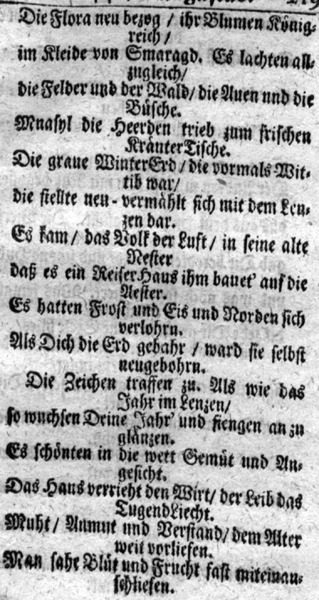 Die Flora neu bezog / ihr Blumen König-
reich /
im Kleide von Smaragd. Es lachten all-
zugleich /
die Felder und der Wald / die Auen und die
Büsche.
Mnasyl die Heerden trieb zum frischen
KräuterTische.
Die graue WinterErd / die vormals Wit-
tib war /
die stellte neu-vermählt sich mit dem Len-
zen dar.
Es kam / das Volk der Luft / in seine alte
Nester
daß es ein ReiserHaus ihm bauet' auf die
Aester.
Es hatten Frost und Eis und Norden sich
verlohrn.
Als Dich die Erd gebahr / ward sie selbst
neugebohrn.
Die Zeichen traffen zu. Als wie das
Jahr im Lenzen /
so wuchsen Deine Jahr' und fiengen an zu
glänzen.
Es schönten in die wett Gemüt und An-
gesicht.
Das Haus verrieht den Wirt / der Leib das
TugendLiecht.
Muht / Anmut und Verstand / dem Alter
weit vorliefen.
Man sahe Blüt und Frucht fast miteinan-
schliesen.